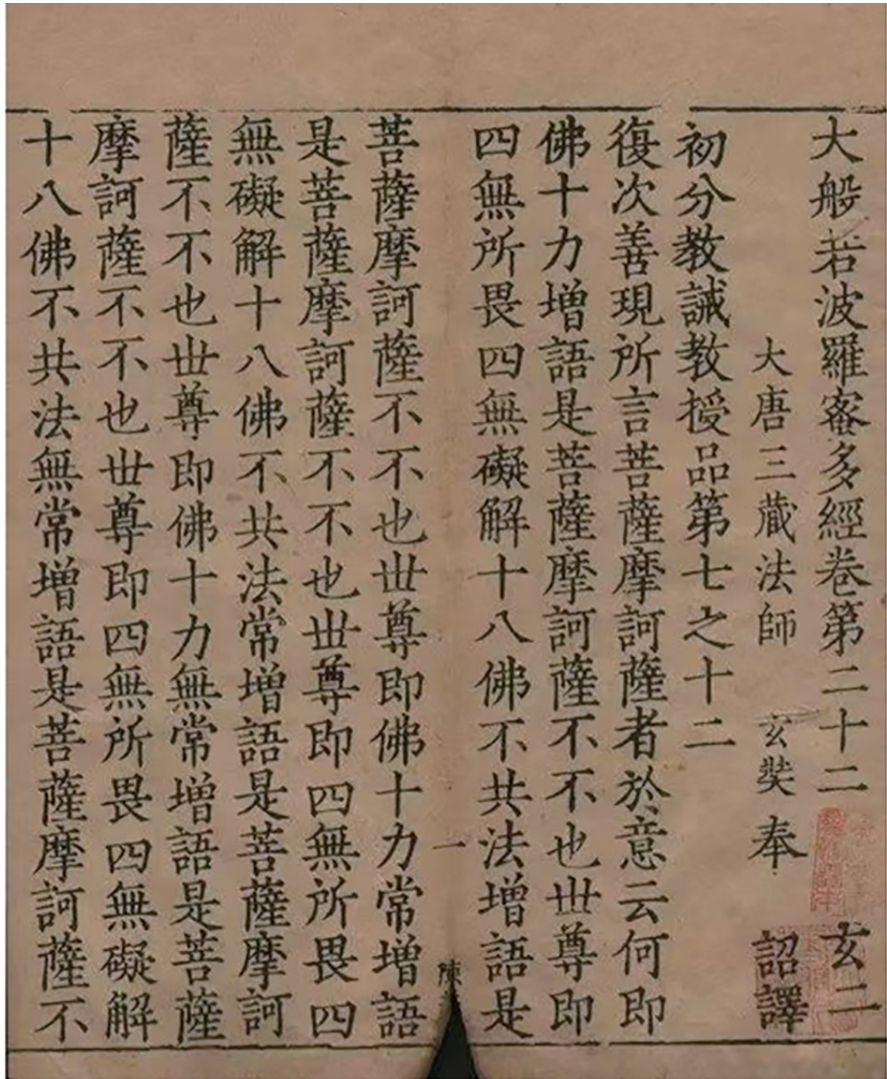 大般若波羅蜜多經卷第二十二 玄二
大唐三藏法師 玄奘奉 詔譯
初分教誡教授品第七之十二
復次善現所言菩薩摩訶薩者於意云何即
佛十力增語是菩薩摩訶薩不不也世尊即
四無所畏四無礙解十八佛不共法增語是
一 陳
菩薩摩訶薩不不也世尊即佛十力常增語
是菩薩摩訶薩不不也世尊即四無所畏四
無礙解十八佛不共法常增語是菩薩摩訶
薩不不也世尊即佛十力無常增語是菩薩
摩訶薩不不也世尊即四無所畏四無礙解
十八佛不共法無常增語是菩薩摩訶薩不